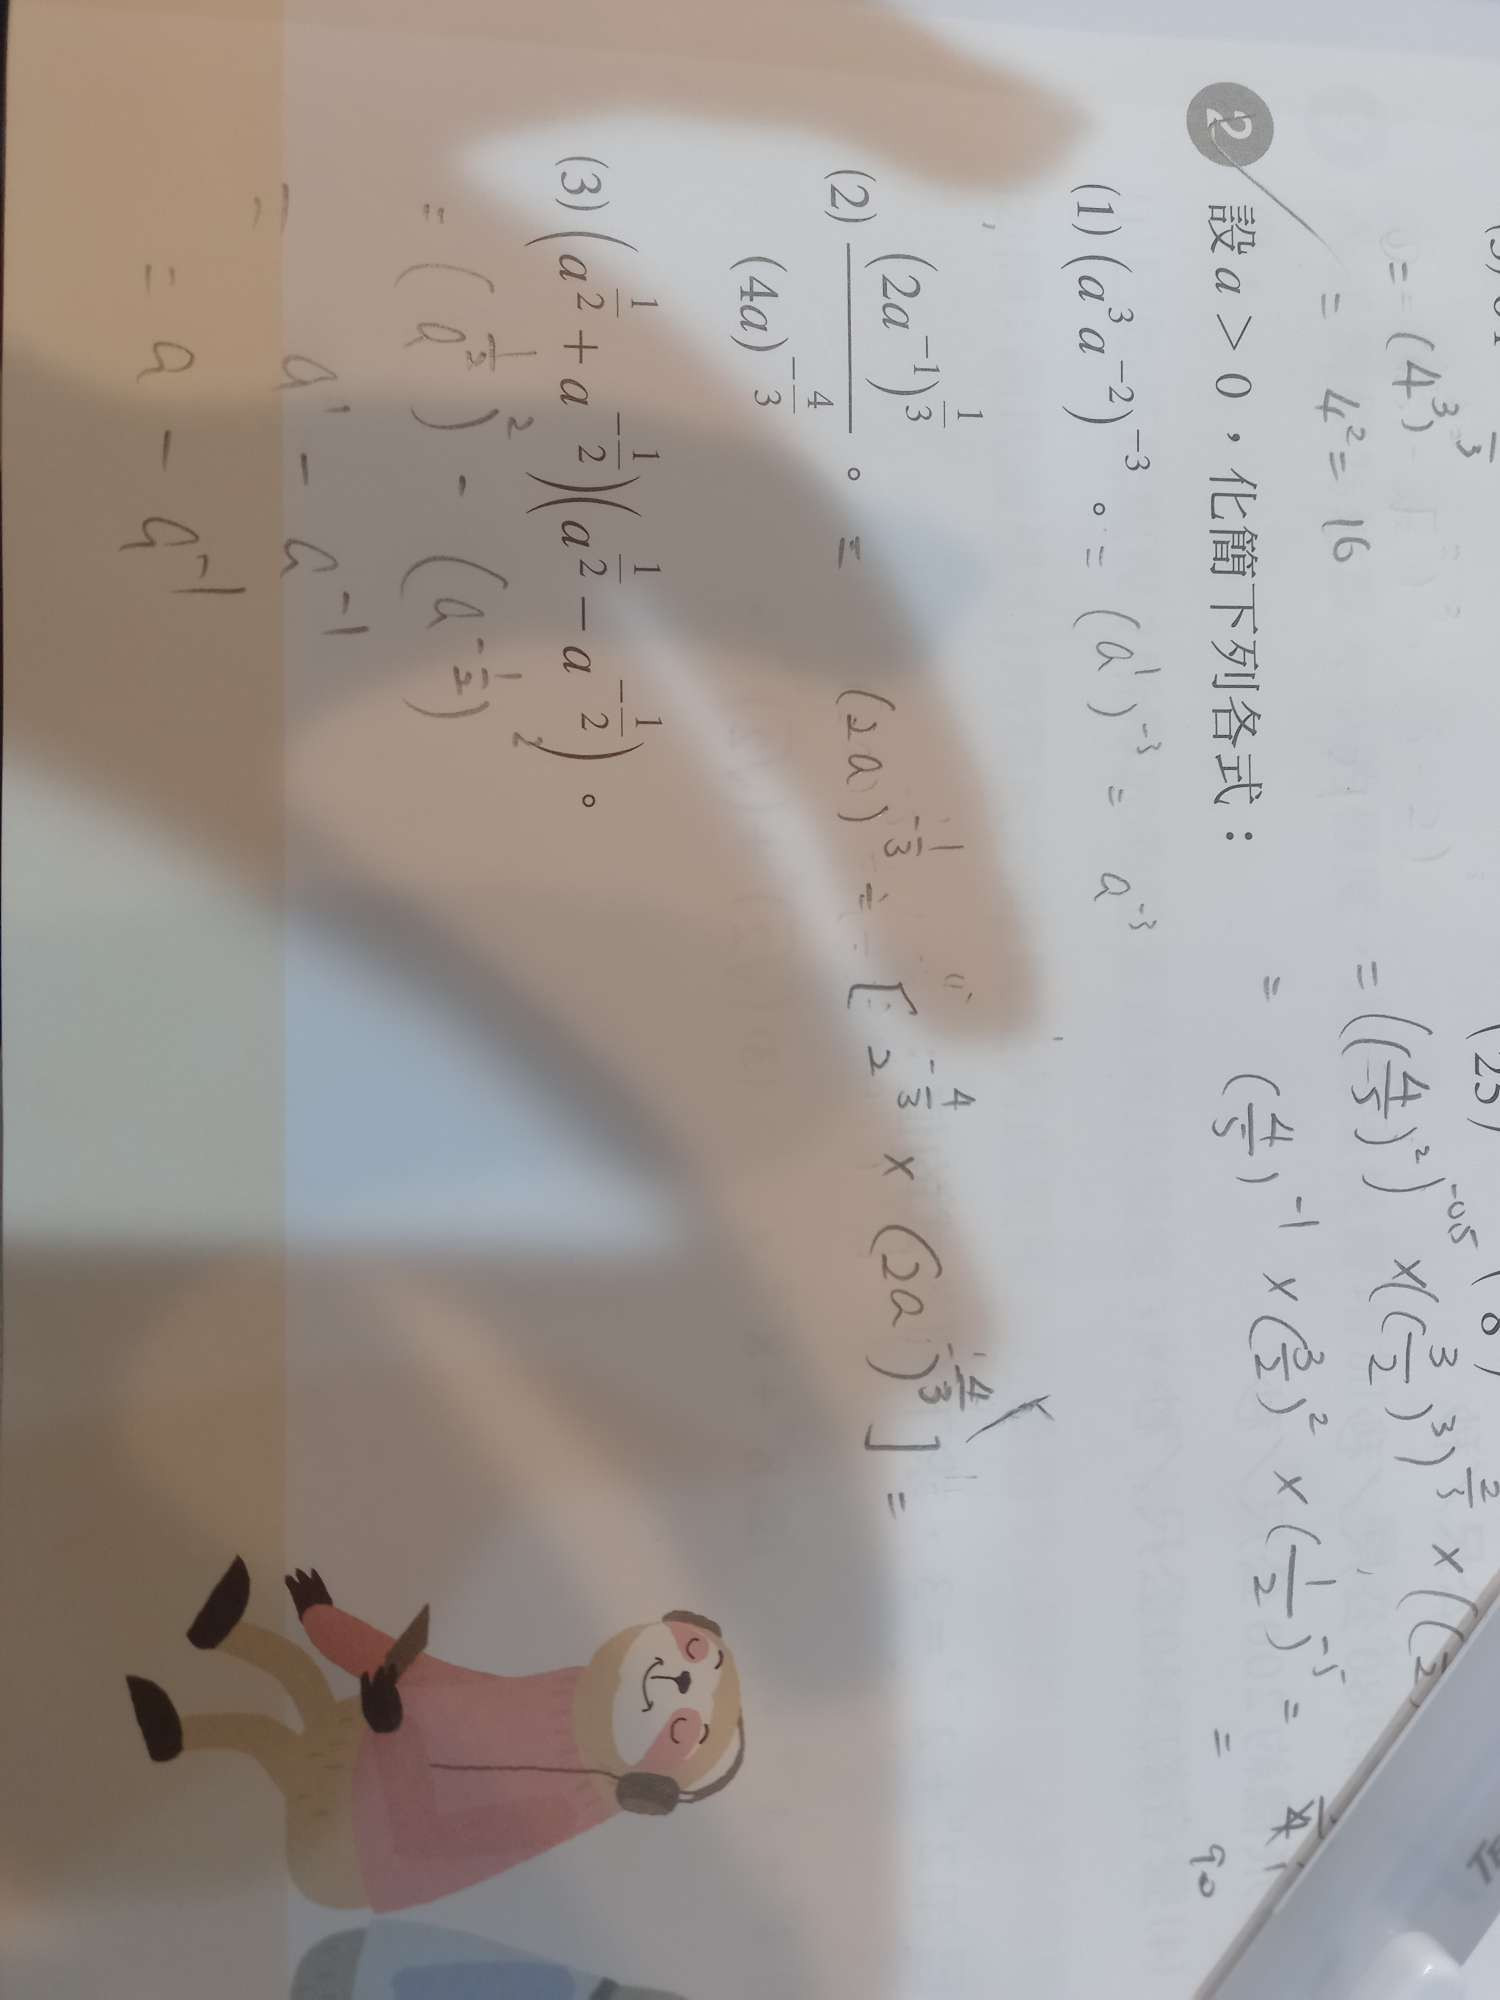 = (4³)
= 4² = 16
= ((4/5)²)^-0.5 × ((3/2)³)
= (4/5)^-1 × (3/2)² × (1/2)^-5 =
= 90
2 設 a > 0，化簡下列各式：
(1) (a³a⁻²)⁻³。 = (a¹)⁻³ = a⁻³
(2) (2a⁻¹)^(1/3) / (4a)^(-4/3)。 = (2a)^(-1/3) ÷ [2^(-4/3) × (2a)^(-4/3)] =
(3) (a^(1/2) + a^(-1/2))(a^(1/2) − a^(-1/2))。
= (a^(1/2))² - (a^(-1/2))²
= a¹ - a⁻¹
= a - a⁻¹